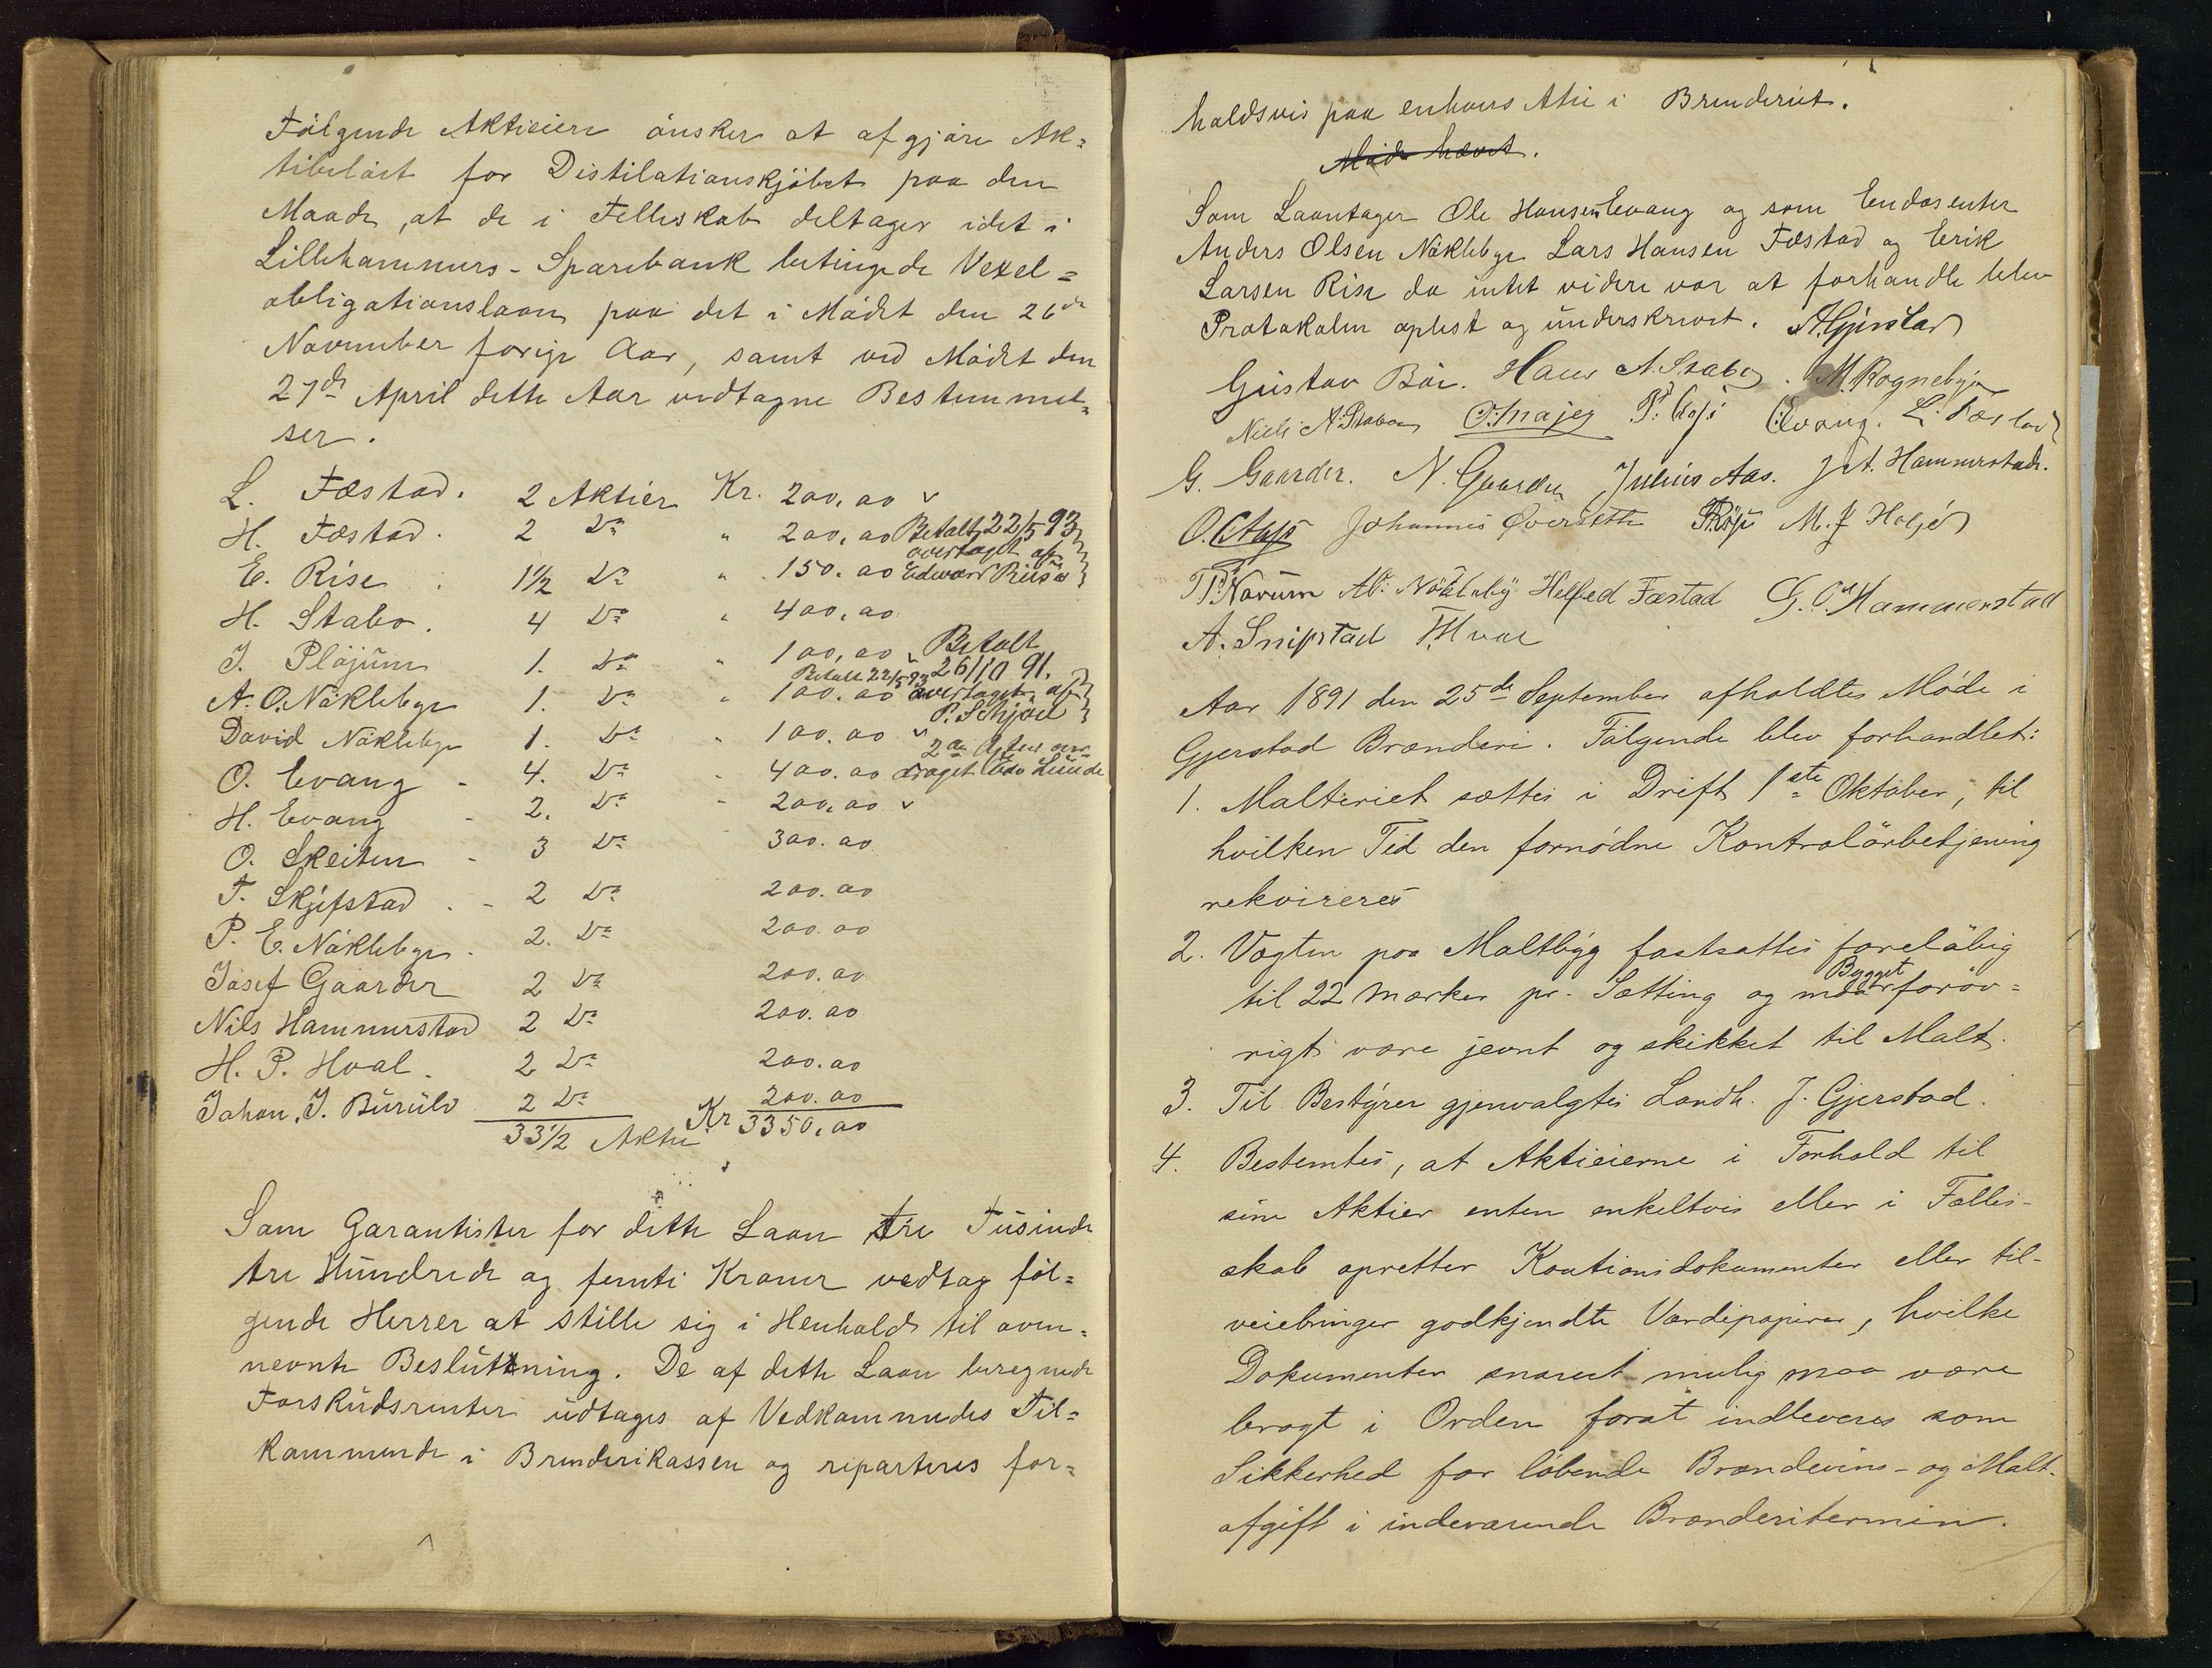 Følgende Aktieiere ønsker at afgjøre Ak=
tibeløbet for Distilationskjøbet paa den
Maade, at de i Felleskab deltager idet i
Lillehammers-Sparebank betingede Vexel=
obligationslaan paa det i Mødet den 26de
November forige Aar, samt ved Mødet den
27de April dette Aar vedtagne Bestemmel=
ser.
L. Fæstad. 2 Aktier Kr. 200,00 v
H. Fæstad. 2 Do " 200,00 Betalt 22/5 93
overtaget af
E. Rise 1½ Do " 150.00 Edward Riise
H. Stabo. 4 Do " 400,00
J. Pløjum 1. Do " 100,00 v Betalt
Betalt 22/5 93 26/10 91.
A. O. Nökleby 1. Do " 100.00 overtaget af
P. Schjöll
David Nökleby 1. Do " 100.00 v
2 Aktier over
O. Evang - 4. Do " 400.00 draget Lunde
H. Evang - 2. Do " 200,00 v
O. Skeiten - 3 Do 300.00
T. Skjefstad . - 2 Do 200.00
P. E. Nökleby - 2. Do 200.00
Josef Gaarder 2 Do 200.00
Nils Hammerstad 2 Do 200.00
H. P. Hval. 2 Do 200.00
Johan. J. Burulv 2 Do 200.00
33½ Aktie Kr 3350,00
Som Garantister for dette Laan tre Tusinde
tre Hundrede og femti Kroner vedtog føl=
gende Herrer at stille sig i Henhold til oven=
nevnte Beslutning. De af dette Laan beregnede
Forskudsrenter udtages af Vedkommendes Til=
kommende i Brenderikassen og reparteres for=
holdsvis paa enhvers Atie i Brenderiet.
Møde hævet.
Som Laantager Ole Hansen Evang og som Endosenter
Anders Olsen Nökleby Lars Hansen Fæstad og Erik
Larsen Rise da intet videre var at forhandle blev
Protokolen oplest og underskrevet. A. Gjerstad
Gustav Böe. Hans N. Stabo. M. Rognebye
Niels N. Stabo P. Evang. L. Fæstad
G. Gaarder. N. Gaarder Julius Aas. Hammerstad.
Johannes Øverseth M. J
P. Norum Ao. Nökleby Helfred Fæstad G. O. Hammerstad
A. Snipstad Hval
Aar 1891 den 25de September afholdtes Møde i
Gjerstad Brænderi. Følgende blev forhandlet:
1. Malteriet sættes i Drift 1ste Oktober, til
hvilken Tid den fornødne Kontrolørbetjening
rekvireres
2. Vægten paa Maltbyg fastsattes foreløbig
til 22 Mærker pr. Sætting og maa Bygget forøv=
rigt være jevnt og skikket til Malt.
3. Til Bestyrer gjenvalgtes Landh. J. Gjerstad.
4. Bestemtes, at Aktieierne i Forhold til
sine Aktier enten enkeltvis eller i Fælles-
skab opretter Kautionsdokumenter eller til-
veiebringer godkjendte Værdipapirer, hvilke
Dokumenter snarest mulig maa være
bragt i Orden forat indleveres som
Sikkerhed for løbende Brændevins- og Malt-
afgift i indeværende Brænderitermin.